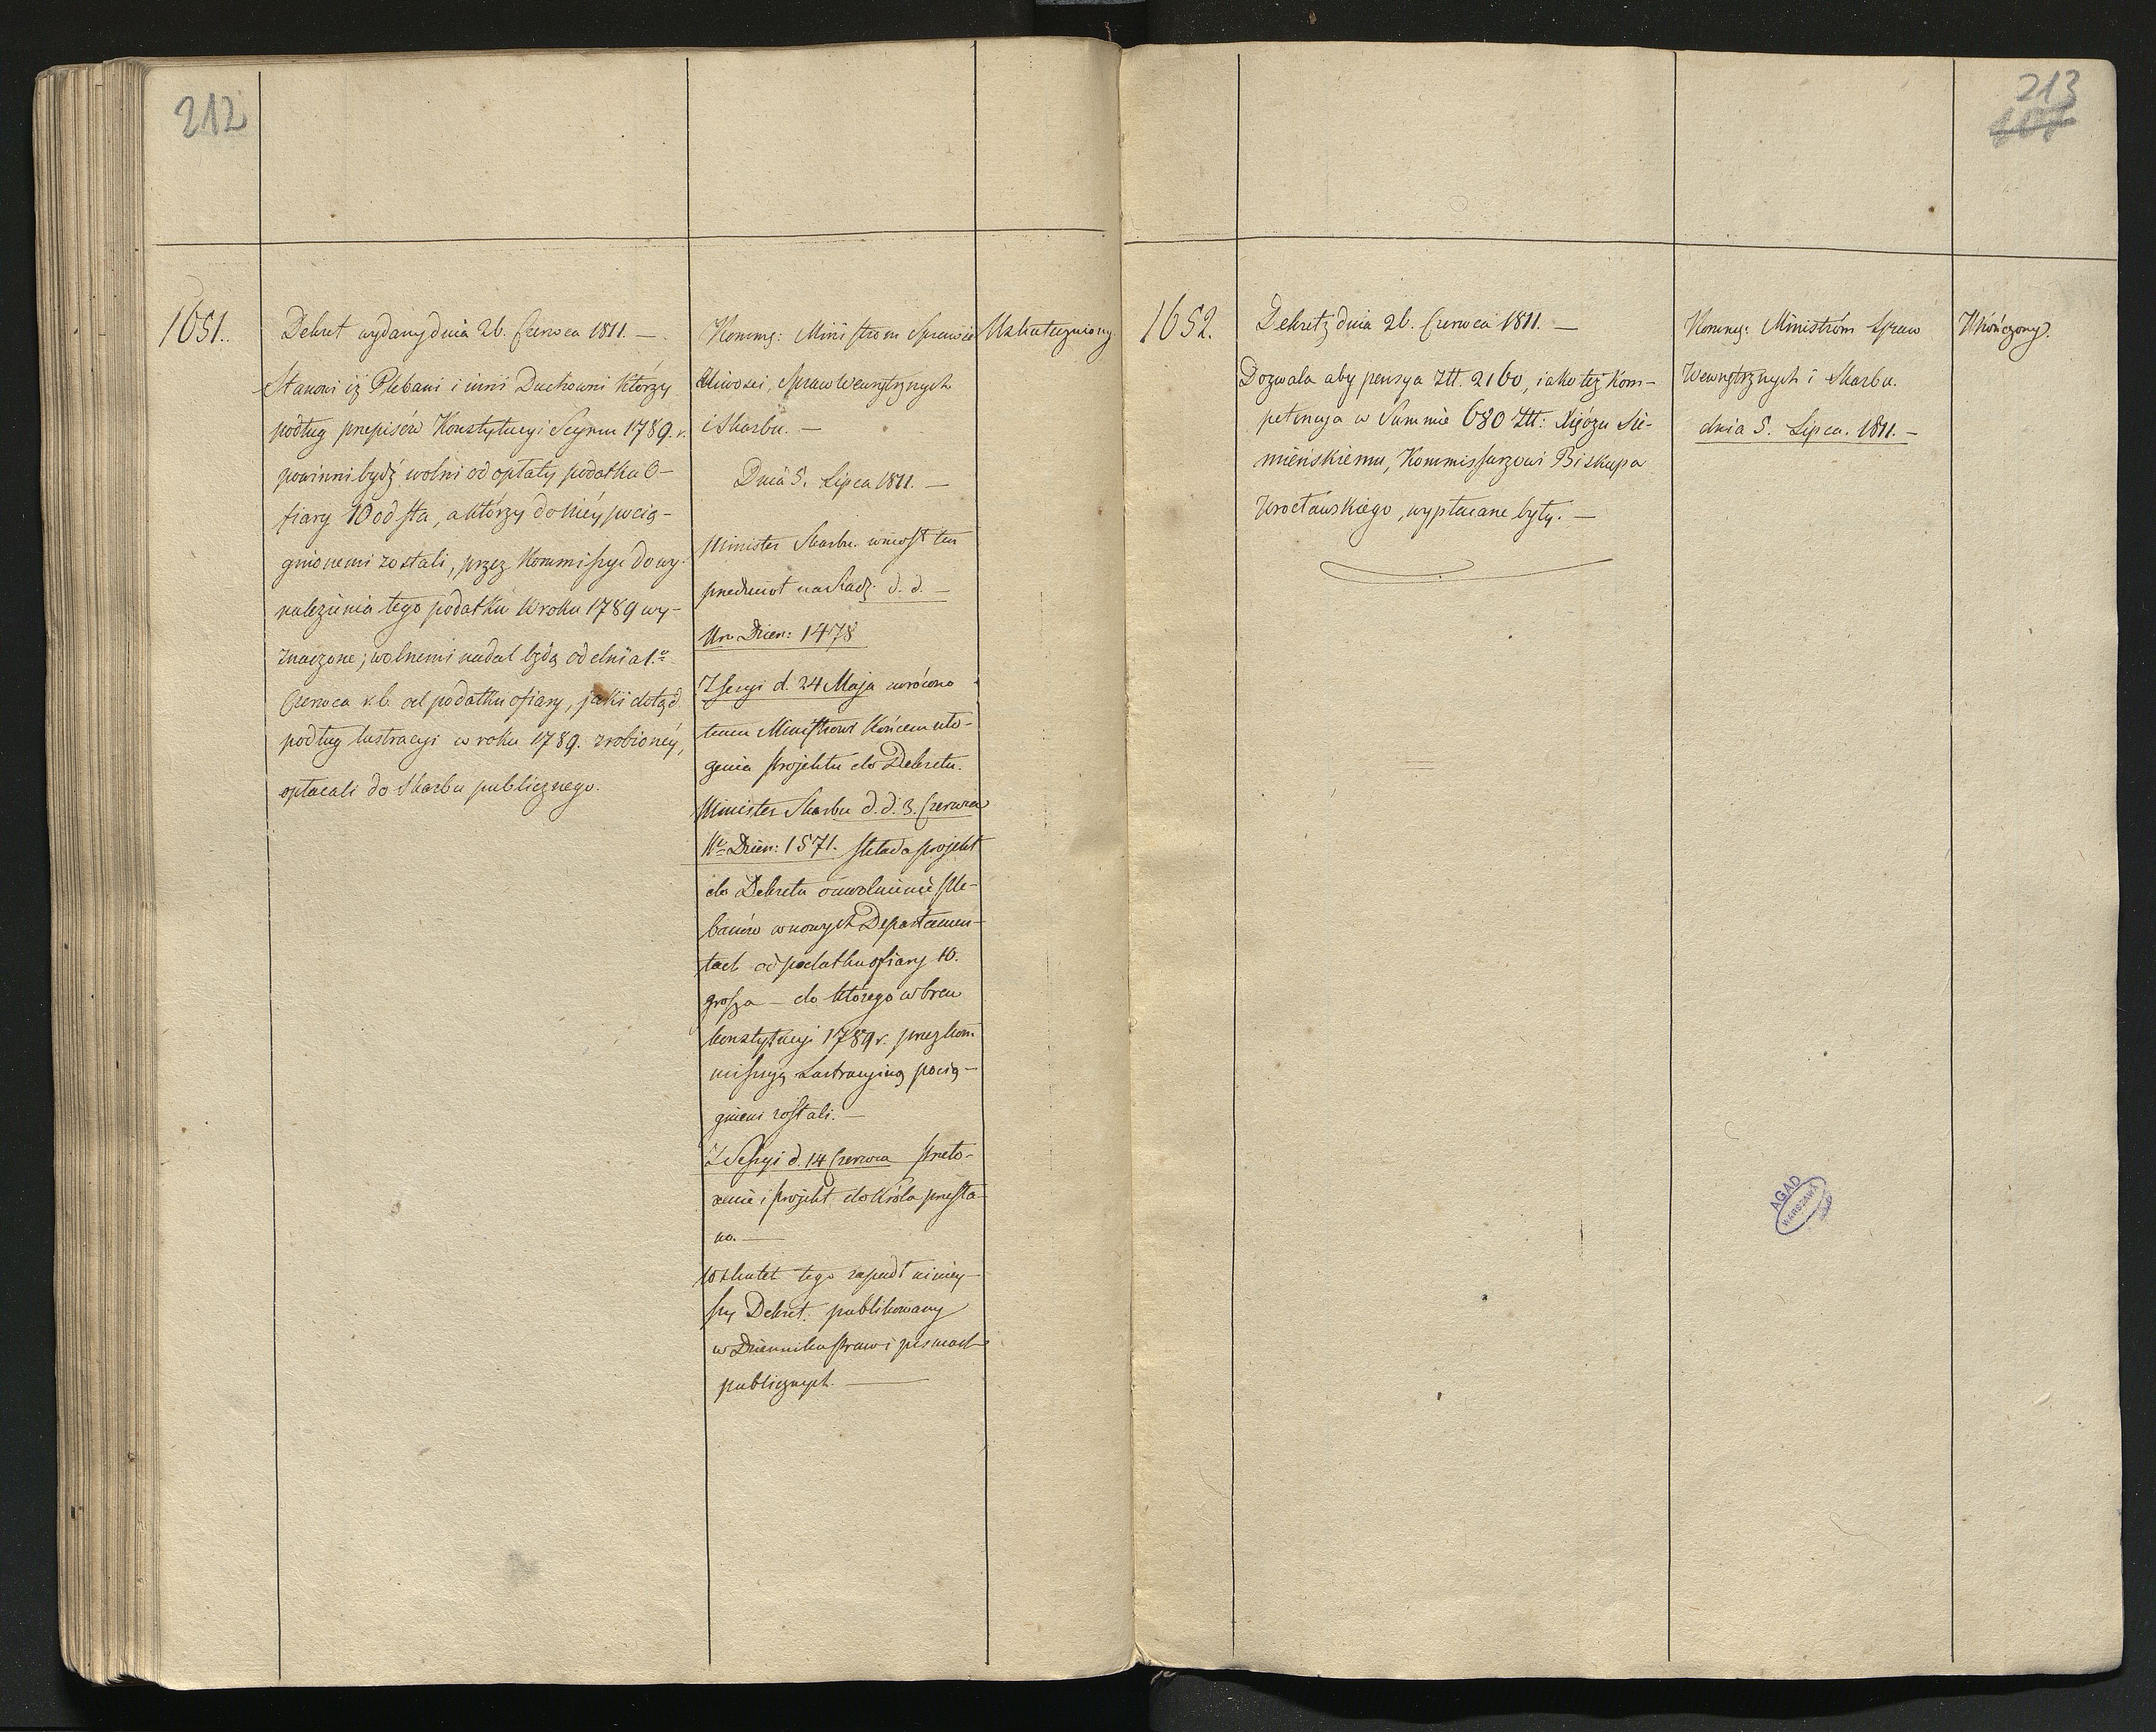 212
1651.
Dekret wydany dnia 26. Czerwca 1811. —
Stanowi iż Plebani i inni Duchowni którzy
podług przepisów Konstytucyi Seymu 1789. r.
powinni bydź wolni od opłaty podatku O-
fiary 10 od sta, a którzy do niéy pocią-
gnionemi zostali, przez Kommissye do wy-
nalezienia tego podatku w roku 1789 wy-
znaczone; wolnemi nadal będą od dnia 1.o
Czerwca r.b. od podatku ofiary, jaki dotąd
podług lustracyi w roku 1789. zrobionéy,
opłacali do Skarbu publicznego.
Kommg: Ministrom Sprawie
dliwości, Spraw Wewnętrznych
i Skarbu. —
Dnia 5. Lipca 1811. —
Minister Skarbu wniosł ten
przedmiot na Radę d. d. —
Nr Dzien: 1478
Z sesyi d. 24 Maja wrócono
temu Ministrowi końcem uło-
żenia projektu do Dekretu.
Minister Skarbu d. d. 3. Czerwca
Nr Dzien: 1571. składa projekt
do Dekretu o uwolnienie Ple-
banów w nowych Departamen-
tach od podatku ofiary 10.
grosza — do którego wbrew
konstytucyi 1789 r. przez kom-
missyą Lustracyiną pocią-
gnieni zostali. —
Z Sessyi d. 14 Czerwca przeło-
żenie i projekt do Króla przesła-
no. —
W skutek tego zapadł niniey-
szy Dekret publikowany
w Dzienniku praw i pismach
publicznych. —
Uskuteczniony.
213
107
1652.
Dekret z dnia 26. Czerwca 1811. —
Dozwala aby pensya Złł. 2160, iako też kom-
petencya w Summie 680 Złł: Xiędzu Sie-
mieńskiemu, Kommissarzowi Biskupa
Wrocławskiego, wypłacane były. —
Kommg: Ministróm Spraw
Wewnętrznych i Skarbu.
dnia 5. Lipca. 1811. —
Ukończony.
AGAD
WARSZAWA